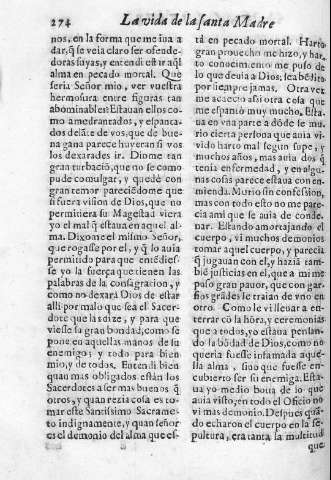 274 La vida de la santa Madre
nos, en la forma que me iua a
dar, q̃ se veia claro ser ofende-
doras suyas, y entendi estar aq̃l
alma en pecado mortal. Que
seria Señor mio, ver vuestra
hermosura entre figuras tan
abominables: Estauan ellos co-
mo amedrantados, y espanta-
dos delãte de vos, que de bue-
na gana parece huveran si vos
los dexarades ir. Diome tan
gran turbació, que no se como
pude comulgar, y quedé con
gran temor pareciẽdome que
si fuera vision de Dios, que no
permitiera su Magestad viera
yo el mal q̃ estaua en aquel al-
ma. Dixome el mismo Señor,
que rogasse por el, y q̃ lo auia
permitido para que entẽdies-
se yo la fuerça que tienen las
palabras de la consagracion, y
como no dexará Dios de estar
alli por malo que sea el Sacer-
dote que las dize, y para que
viesse su gran bondad, como se
pone en aquellas manos de su
enemigo; y todo para bien
mio, y de todos. Entendi bien
quan mas obligados están los
Sacerdotes a ser mas buenos q̃
otros, y quan rezia cosa es to-
mar este Santissimo Sacrame-
to indignamente, y quan señor
es el demonio del alma que es-
tá en pecado mortal. Harto
gran prouecho me hizo, y har-
to conocimiento me puso de
lo que deuia a Dios, sea bẽdito
por siempre jamas. Otra vez
me acaeció assi otra cosa que
me espantó muy mucho. Esta-
ua en vna parte a dõde se mu-
rio cierta persona que auia vi-
vido harto mal segun supe, y
muchos años, mas auia dos q̃
tenia enfermedad, y en algu-
nas cosas parece estaua con en-
mienda. Murio sin confession,
mas con todo esto no me pare-
cia ami que se auia de conde-
nar. Estando amortajando el
cuerpo, vi muchos demonios
tomar aquel cuerpo, y parecia
q̃ jugauan con el, y haziã tam-
biẽ justicias en el, que a mi me
puso gran pauor, que con gar-
fios grãdes le traian de vno en
otro. Como le vi lleuar a en-
terrar cõ la hõra, y ceremonias
que a todos, yo estaua pensan-
do la bõdad de Dios, como no
queria fuesse infamada aque-
lla alma, sino que fuesse en-
cubierto ser su enemiga. Esta-
ua yo medio boua de lo que
auia visto, en todo el Oficio no
vi mas demonio. Despues quã-
do echaron el cuerpo en la se-
pultura, era tanta la multitud
que